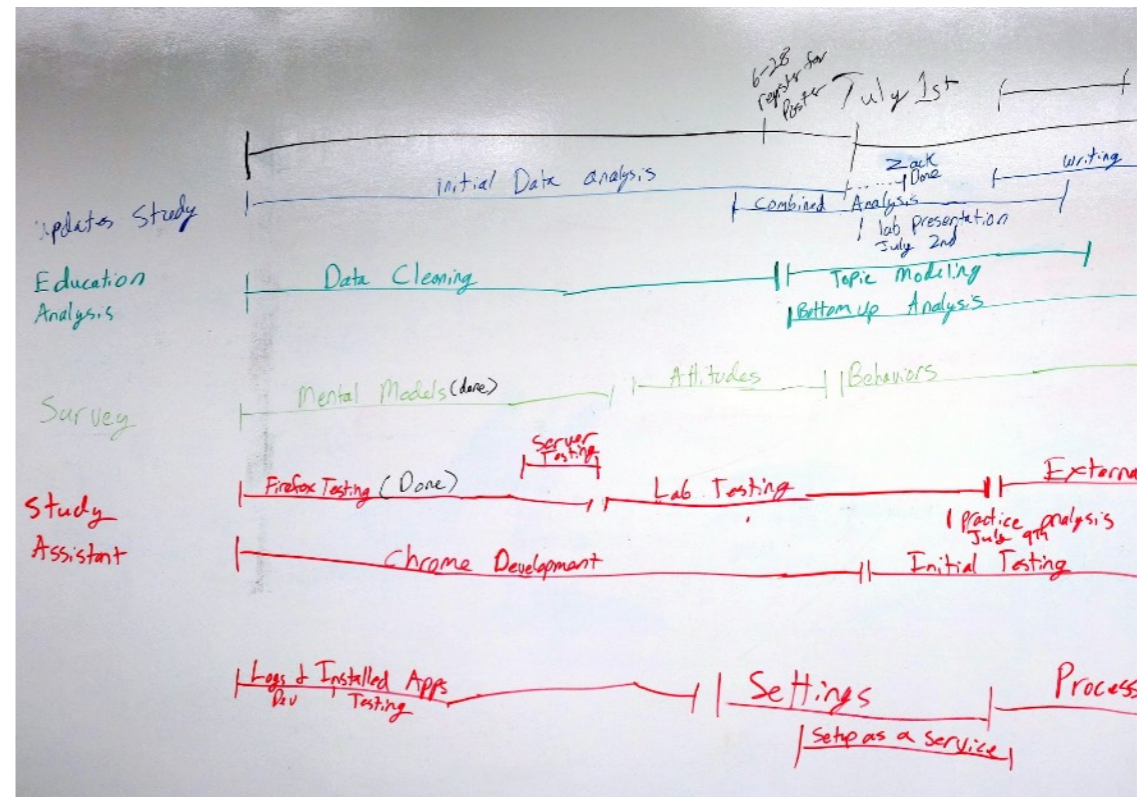 6-28
register for
Poster
July 1st
Zack
Done
Initial Data analysis
Writing
Updates Study
Combined Analysis
lab presentation
July 2nd
Education
Analysis
Data Cleaning
Topic Modeling
Bottom up Analysis
Survey
Mental Models (done)
Attitudes
Behaviors
Server
Testing
Study
Assistant
Firefox Testing (Done)
Lab Testing
Externa
Practice analysis
July 9th
Chrome Development
Initial Testing
Logs & Installed Apps
Dev
Testing
Settings
Process
Setup as a Service